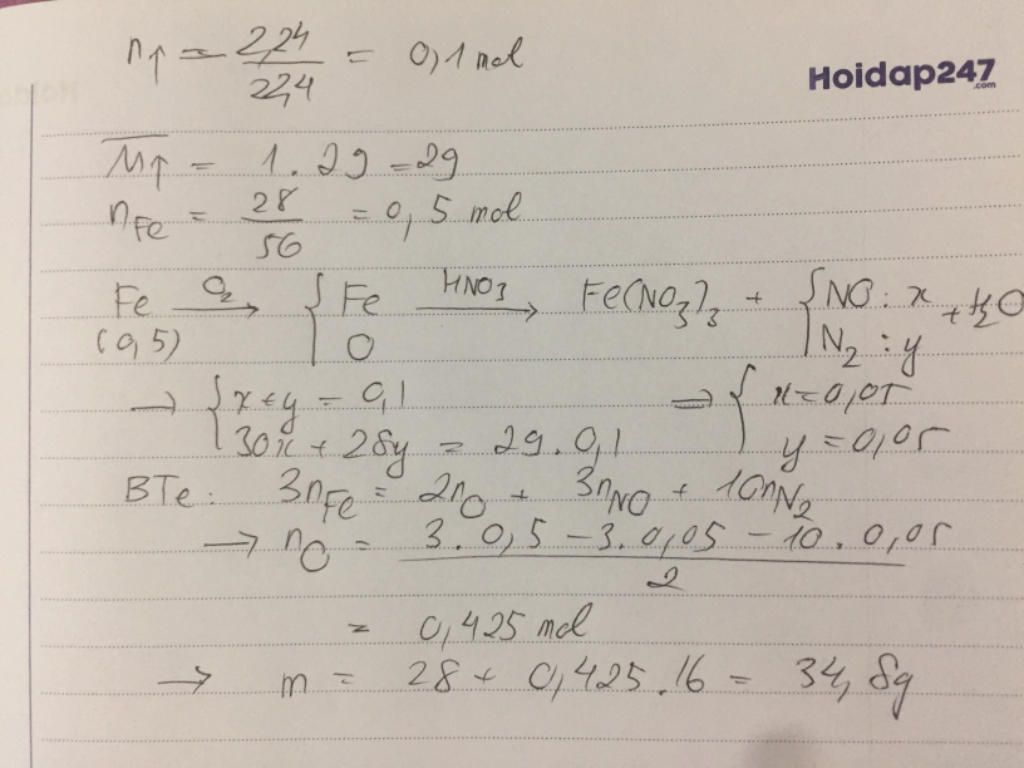 n↑ = 2,24/22,4 = 0,1 mol
Hoidap247
.com
M̅↑ = 1 . 29 = 29
nFe = 28/56 = 0,5 mol
Fe —O₂→ { Fe —HNO₃→ Fe(NO₃)₃ + { NO : x + H₂O
(0,5) O N₂ : y
→ { x + y = 0,1 ⇒ { x = 0,05
30x + 28y = 29 . 0,1 y = 0,05
BTe : 3nFe = 2nO + 3nNO + 10nN₂
→ nO = (3 . 0,5 – 3 . 0,05 – 10 . 0,05)/2
= 0,425 mol
→ m = 28 + 0,425 . 16 = 34,8g